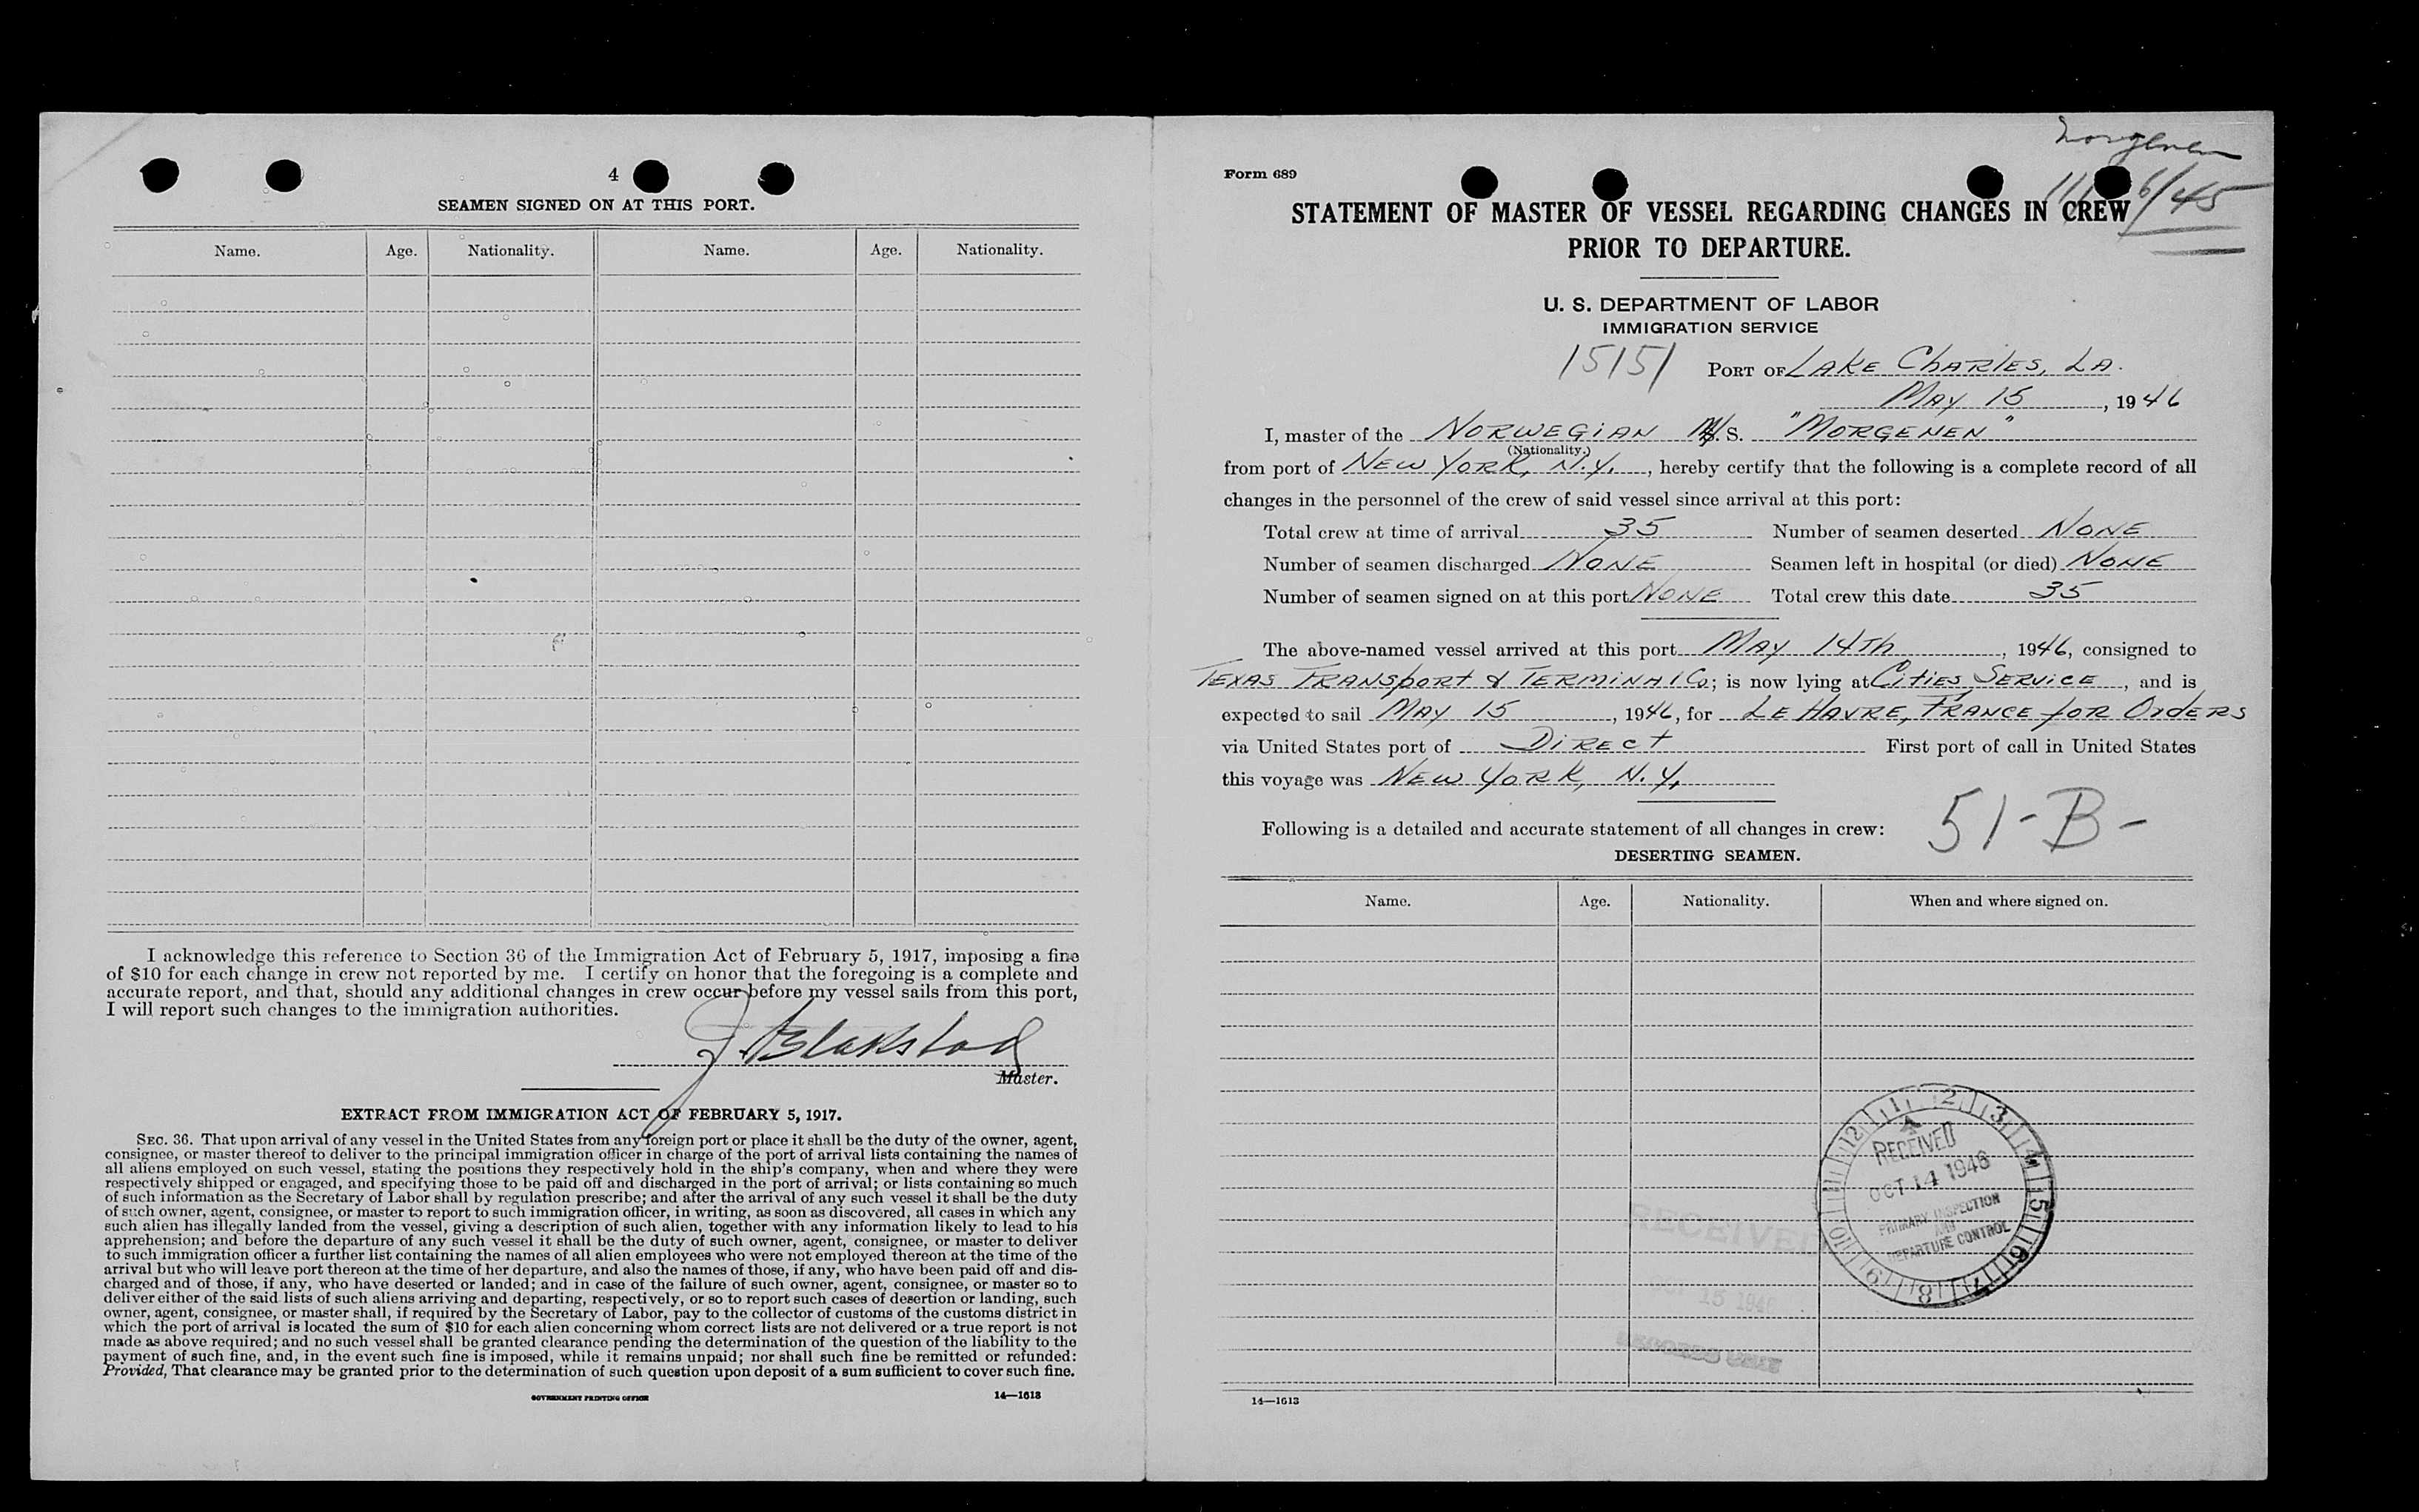 4
SEAMEN SIGNED ON AT THIS PORT.
Name. Age. Nationality. Name. Age. Nationality.
I acknowledge this reference to Section 36 of the Immigration Act of February 5, 1917, imposing a fine
of $10 for each change in crew not reported by me. I certify on honor that the foregoing is a complete and
accurate report, and that, should any additional changes in crew occur before my vessel sails from this port,
I will report such changes to the immigration authorities.
J. Blakstad
Master.
EXTRACT FROM IMMIGRATION ACT OF FEBRUARY 5, 1917.
SEC. 36. That upon arrival of any vessel in the United States from any foreign port or place it shall be the duty of the owner, agent,
consignee, or master thereof to deliver to the principal immigration officer in charge of the port of arrival lists containing the names of
all aliens employed on such vessel, stating the positions they respectively hold in the ship's company, when and where they were
respectively shipped or engaged, and specifying those to be paid off and discharged in the port of arrival; or lists containing so much
of such information as the Secretary of Labor shall by regulation prescribe; and after the arrival of any such vessel it shall be the duty
of such owner, agent, consignee, or master to report to such immigration officer, in writing, as soon as discovered, all cases in which any
such alien has illegally landed from the vessel, giving a description of such alien, together with any information likely to lead to his
apprehension; and before the departure of any such vessel it shall be the duty of such owner, agent, consignee, or master to deliver
to such immigration officer a further list containing the names of all alien employees who were not employed thereon at the time of the
arrival but who will leave port thereon at the time of her departure, and also the names of those, if any, who have been paid off and dis-
charged and of those, if any, who have deserted or landed; and in case of the failure of such owner, agent, consignee, or master so to
deliver either of the said lists of such aliens arriving and departing, respectively, or so to report such cases of desertion or landing, such
owner, agent, consignee, or master shall, if required by the Secretary of Labor, pay to the collector of customs of the customs district in
which the port of arrival is located the sum of $10 for each alien concerning whom correct lists are not delivered or a true report is not
made as above required; and no such vessel shall be granted clearance pending the determination of the question of the liability to the
payment of such fine, and, in the event such fine is imposed, while it remains unpaid; nor shall such fine be remitted or refunded:
Provided, That clearance may be granted prior to the determination of such question upon deposit of a sum sufficient to cover such fine.
GOVERNMENT PRINTING OFFICE 14—1613
Form 689
STATEMENT OF MASTER OF VESSEL REGARDING CHANGES IN CREW
PRIOR TO DEPARTURE.
U. S. DEPARTMENT OF LABOR
IMMIGRATION SERVICE
15151 PORT OF LAKE CHARLES, LA.
MAY 15, 1946
I, master of the NORWEGIAN M/S. "MORGENEN"
(Nationality.)
from port of NEW YORK, N.Y., hereby certify that the following is a complete record of all
changes in the personnel of the crew of said vessel since arrival at this port:
Total crew at time of arrival 35 Number of seamen deserted NONE
Number of seamen discharged NONE Seamen left in hospital (or died) NONE
Number of seamen signed on at this port NONE Total crew this date 35
The above-named vessel arrived at this port MAY 14TH, 1946, consigned to
TEXAS TRANSPORT & TERMINAL Co; is now lying at CITIES SERVICE, and is
expected to sail MAY 15, 1946, for LE HAVRE, FRANCE FOR ORDERS
via United States port of DIRECT First port of call in United States
this voyage was NEW YORK, N.Y.
Following is a detailed and accurate statement of all changes in crew: 51-B-
DESERTING SEAMEN.
Name. Age. Nationality. When and where signed on.
1 2 3 4 5 6 7 8 9 10 11 12
RECEIVED
OCT 14 1946
PRIMARY INSPECTION
AND
DEPARTURE CONTROL
RECEIVED
OCT 15 1946
RECORDS UNIT
14—1613